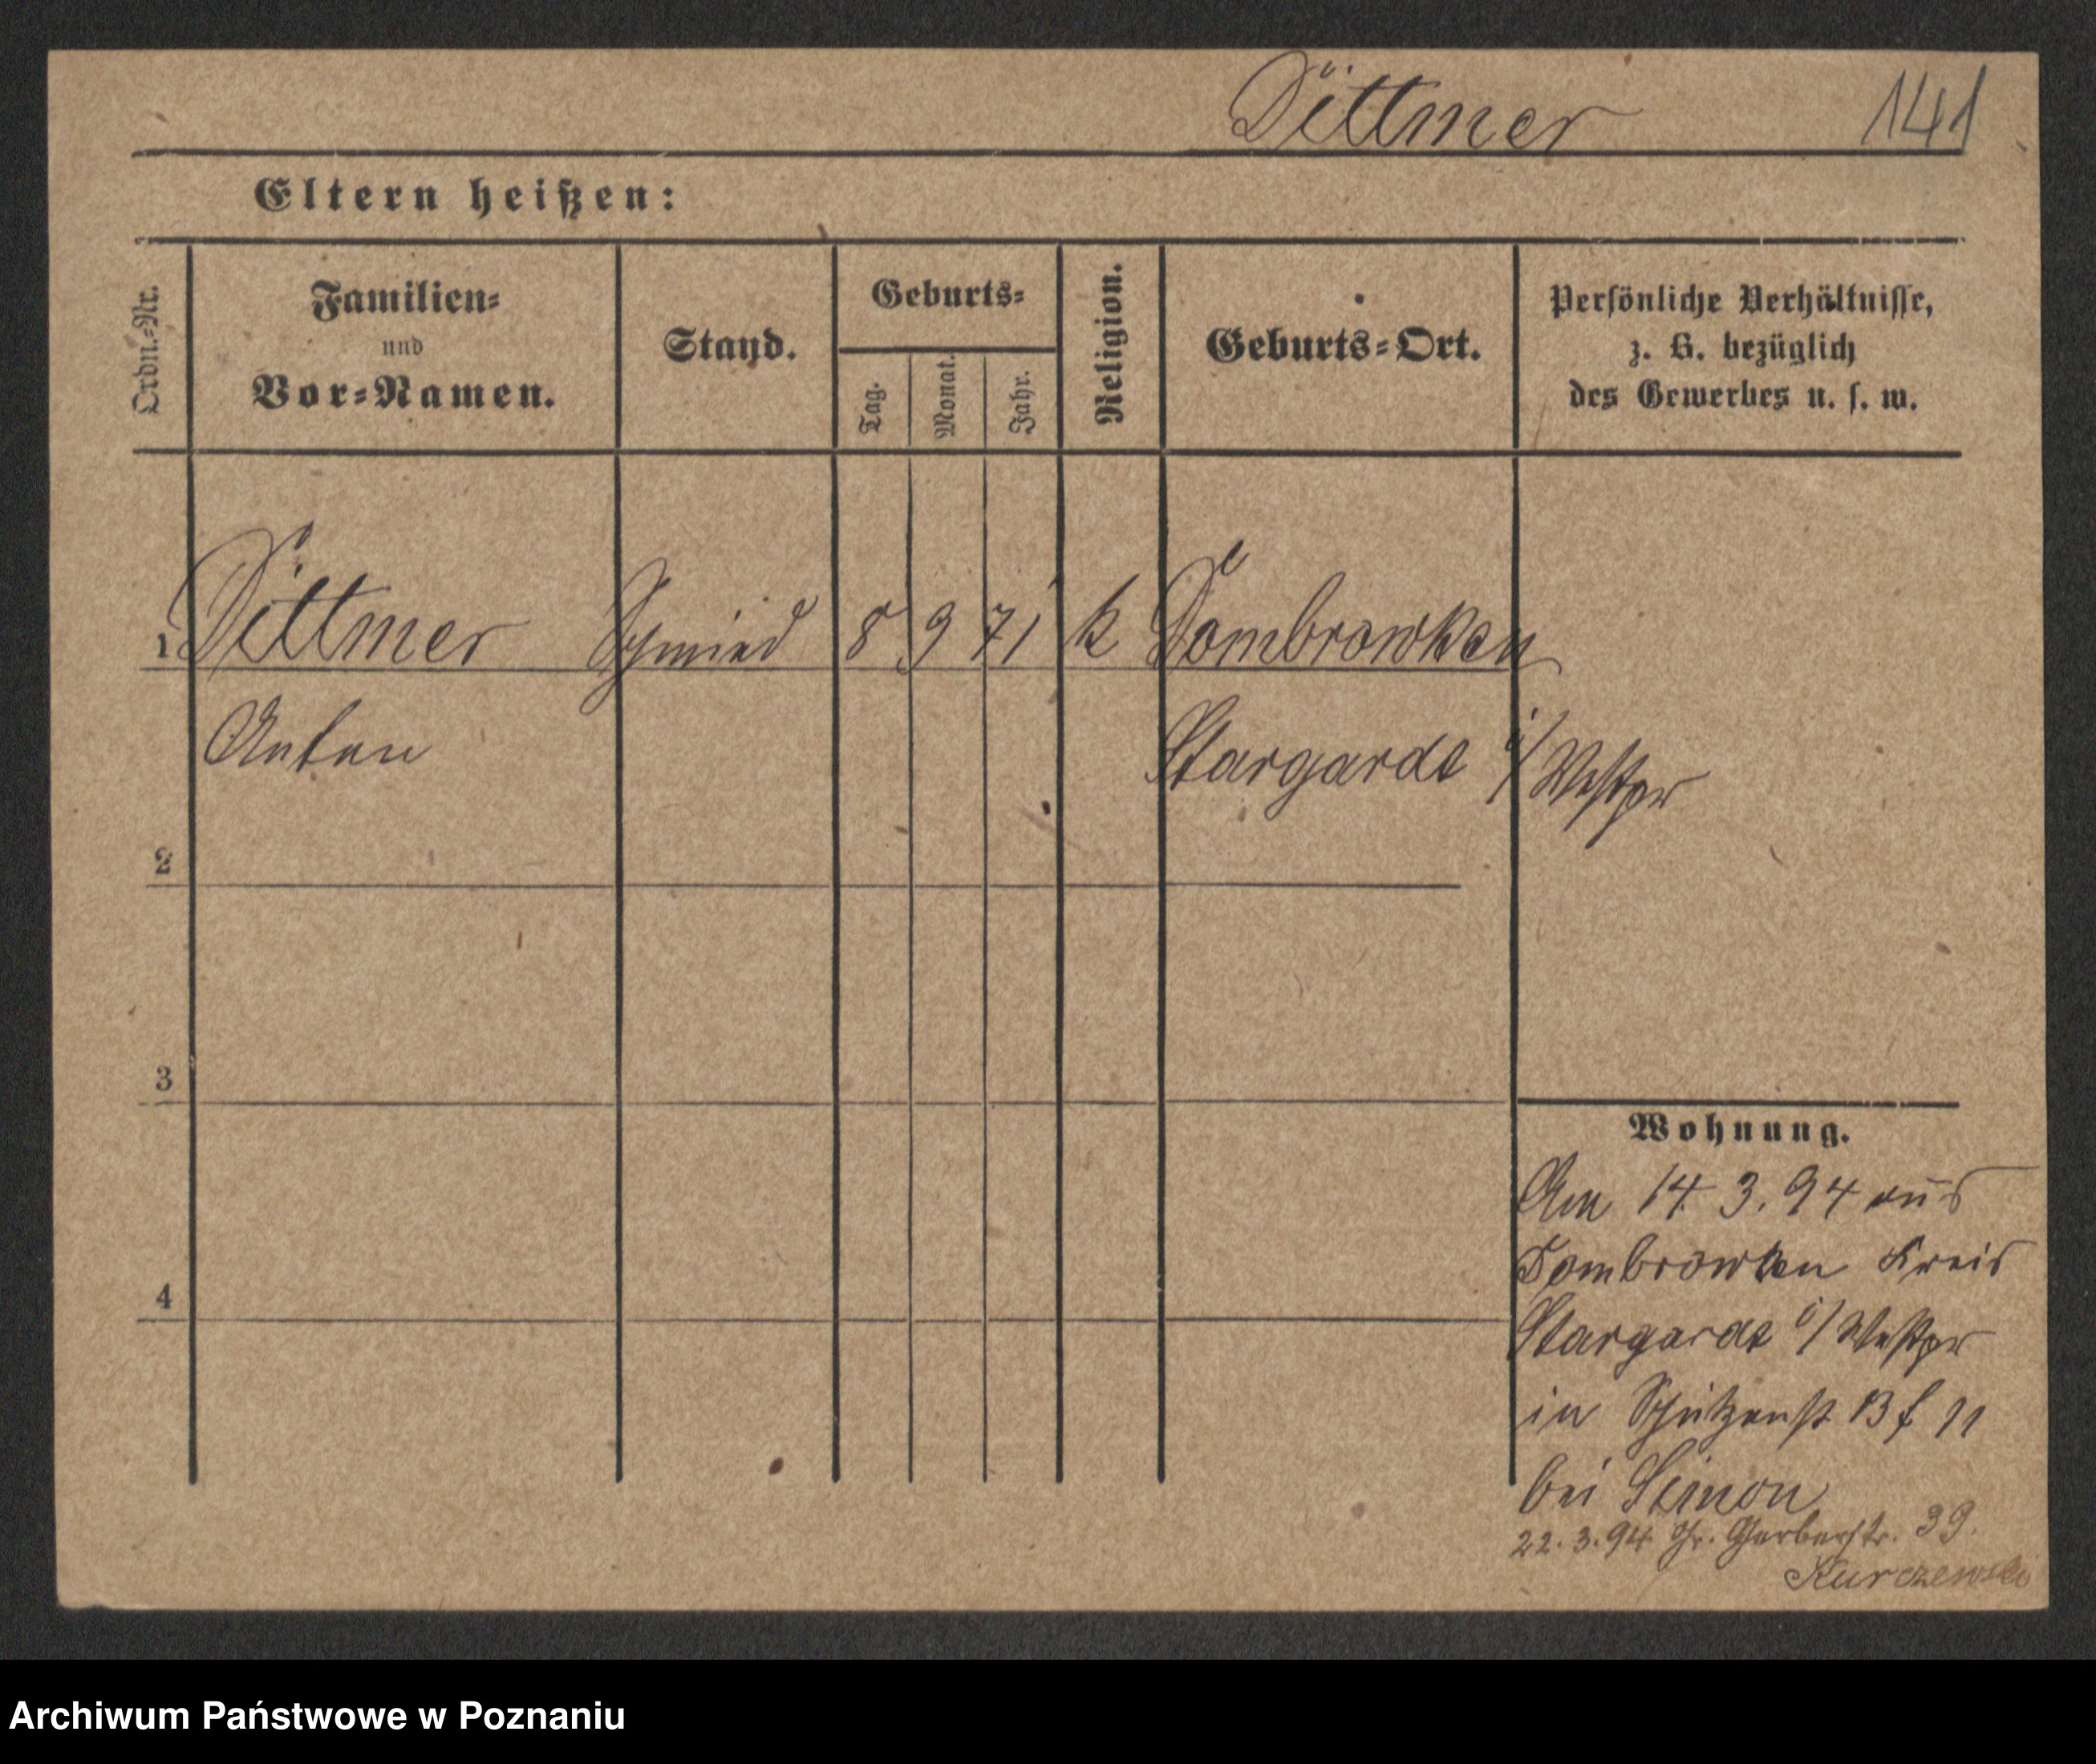 Dittmer 141
Eltern heißen:
Ordn.=Nr.
Familien=
und
Vor=Namen.
Stand.
Geburts=
Tag.
Monat.
Jahr.
Religion.
Geburts=Ort.
Persönliche Verhältnisse,
z. B. bezüglich
des Gewerbes u. s. w.
1 Dittmer Schmied 8 9 71 k Dombrowken
Anton Stargardt i/Westpr
2
3
4
Wohnung.
Am 14. 3. 94 aus
Dombrowken Kreis
Stargardt i/Westpr
in Schützenst 13 f 11
bei Simon
22. 3. 94 Gr. Gerberstr. 39.
Kurczewski
Archiwum Państwowe w Poznaniu